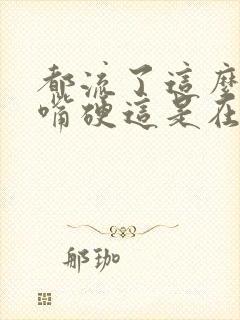 都流了這麼
嘴硬這是在
郍珈